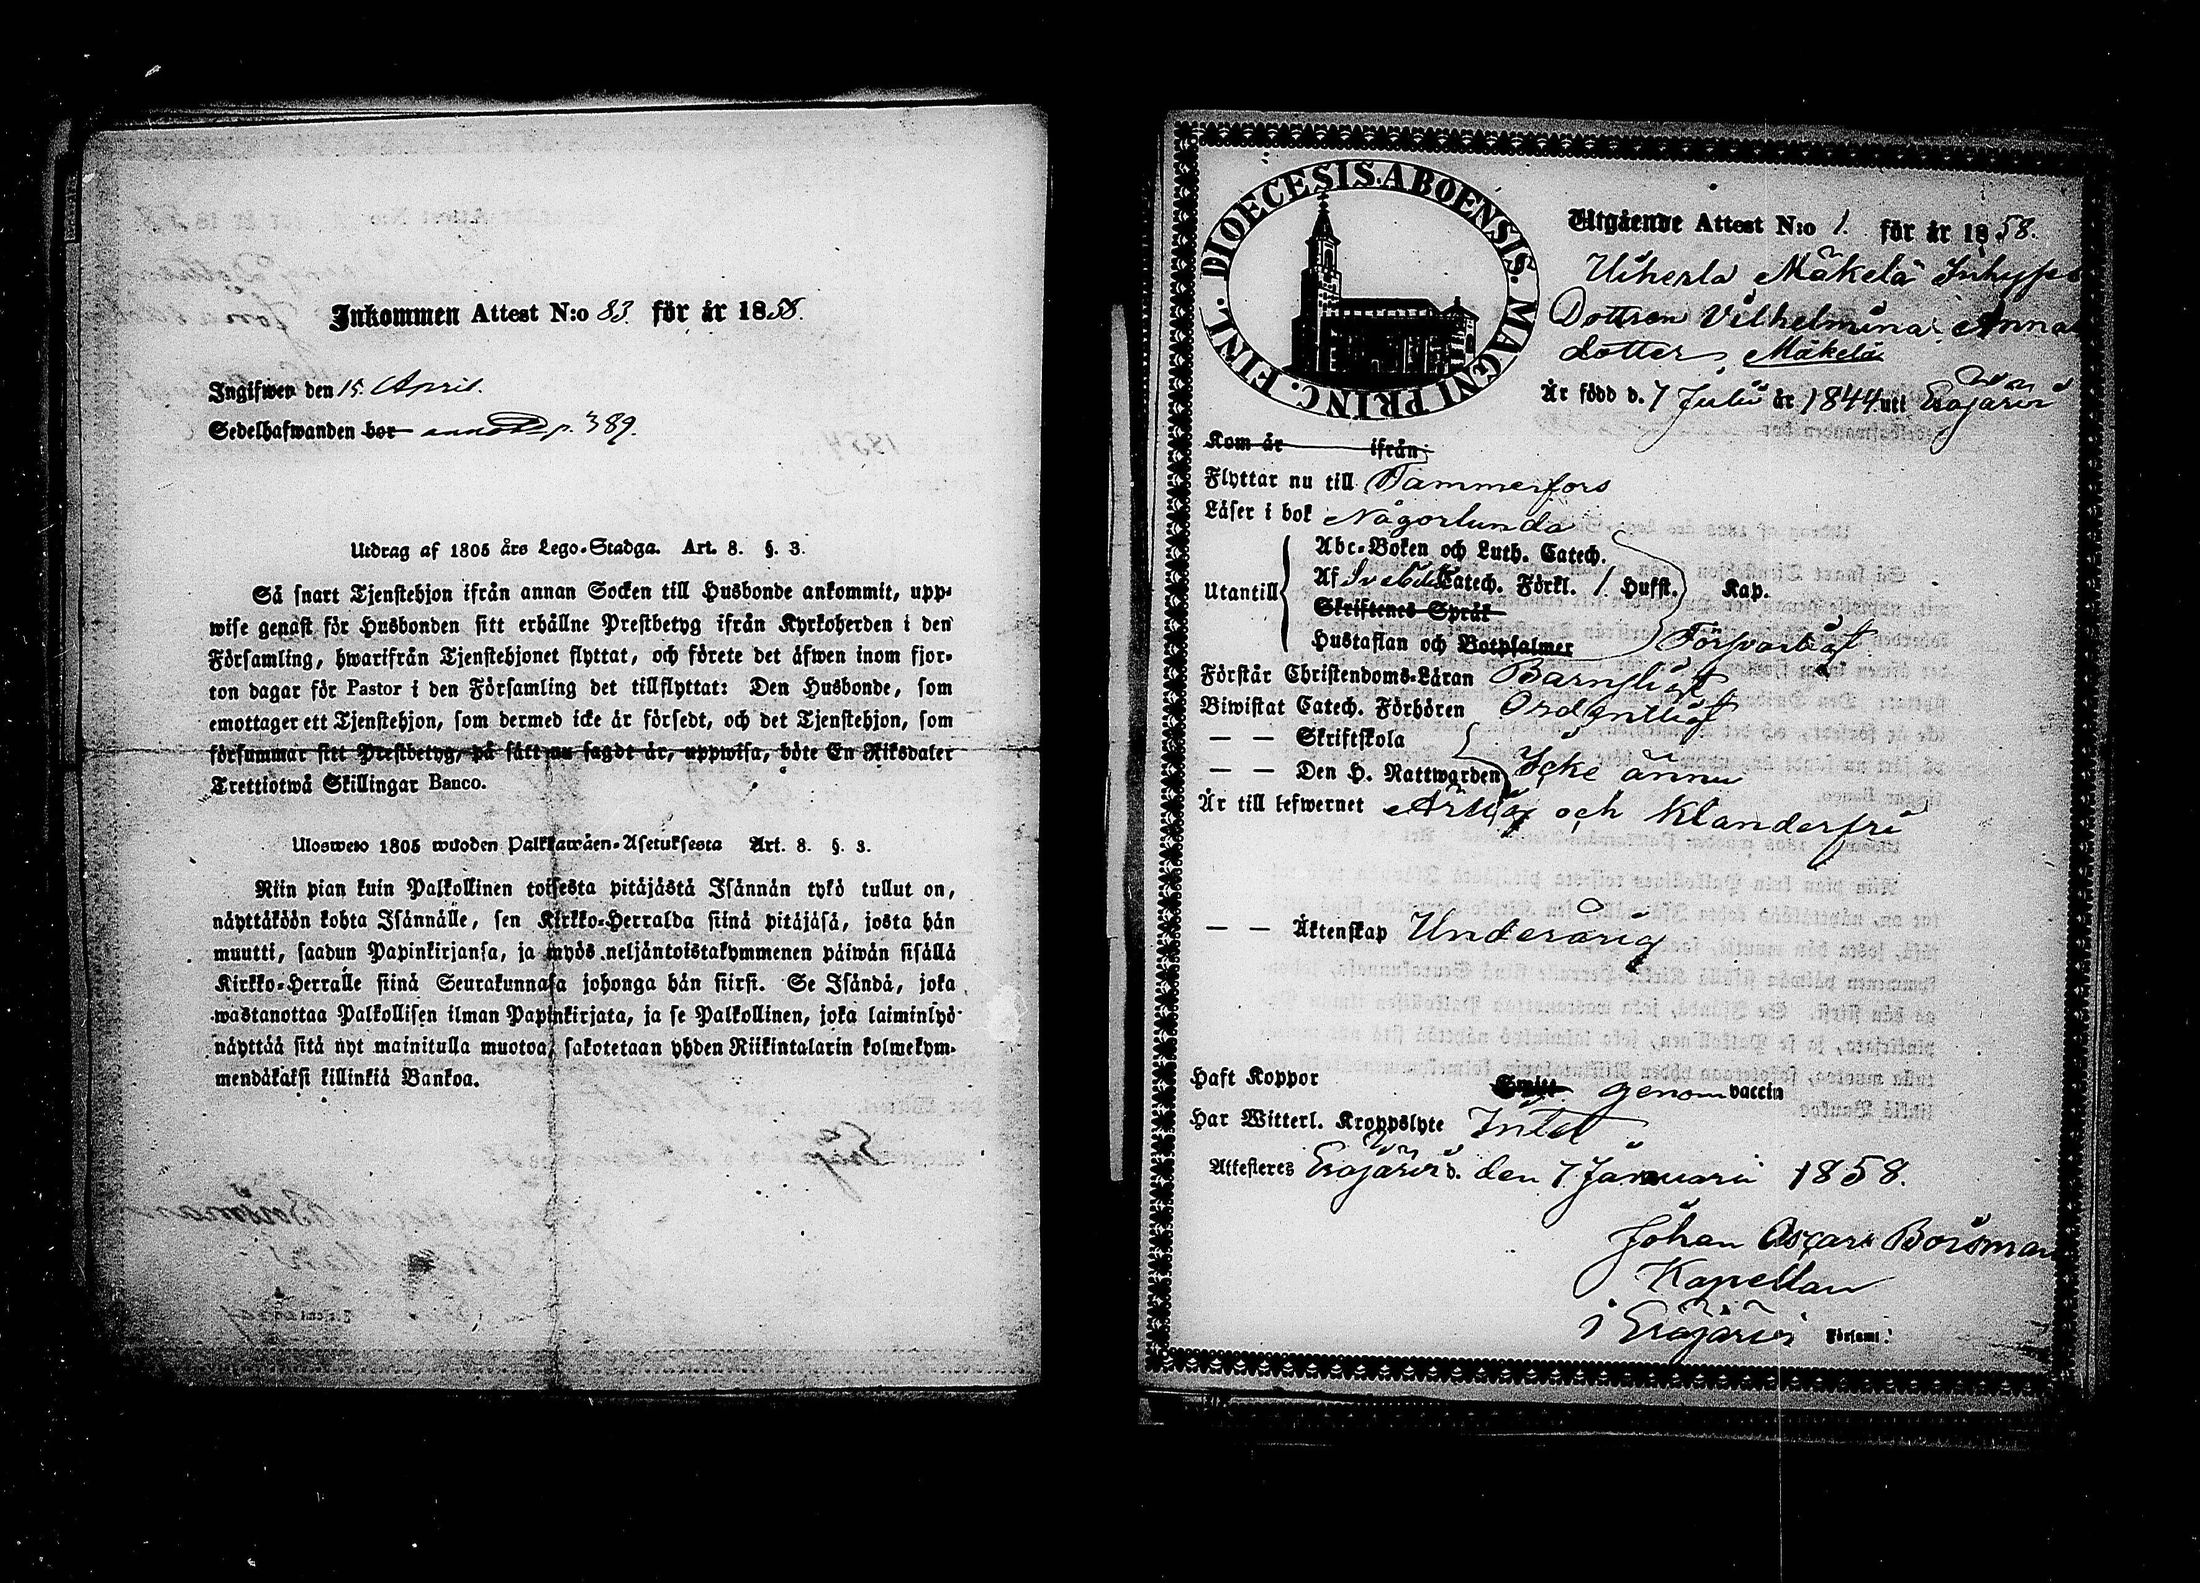 Inkommen Attest N:o 83. för år 1858.
Ingifwen den 15. April.
Sedelhafwanden bor p. 389.
Utdrag af 1805 års Lego-Stadga. Art. 8. §. 3.
Så snart Tjenstehjon ifrån annan Socken till Husbonde ankommit, upp-
wise genast för Husbonden sitt erhållne Prestbetyg ifrån Kyrkoherden i den
Församling, hwarifrån Tjenstehjonet flyttat, och förete det äfwen inom fjor-
ton dagar för Pastor i den Församling det tillflyttat: Den Husbonde, som
emottager ett Tjenstehjon, som dermed icke är försedt, och det Tjenstehjon, som
försummar sitt Prestbetyg, på sätt nu sagdt är, uppwisa, böte En Riksdaler
Trettiotwå Skillingar Banco.
Ulosweto 1805 wuoden Palkkawäen-Asetuksesta Art. 8. §. 3.
Niin pian kuin Palkollinen toisesta pitäjästä Isännän tykö tullut on,
näyttäköön kohta Isännälle, sen Kirkko-Herralda siinä pitäjäsä, josta hän
muutti, saadun Papinkirjansa, ja myös neljäntoistakymmenen päiwän sisällä
Kirkko-Herralle siinä Seurakunnasa johonga hän siirsi. Se Isändä, joka
wastanottaa Palkollisen ilman Papinkirjata, ja se Palkollinen, joka laiminlyö
näyttää sitä nyt mainitulla muotoa, sakotetaan yhden Riikintalarin kolmekym-
mendäkaksi killinkiä Bankoa.
DIOECESIS. ABOENSIS. MAGNI PRINC. FINL.
Utgående Attest N:o 1. för år 1858.
Uiherla Mäkelä Inhyses
Dottren Vilhelmina Anna
dotter Mäkelä
Är född d. 7 Julii år 1844 uti Eräjärvi
Kom år ifrån
Flyttar nu till Tammerfors
Läser i bok Någorlunda
Utantill
Abc-Boken och Luth. Catech.
Af Svebilii Catech. Förkl. 1. Hufst. Kap.
Skriftenes Språk
Hustaflan och Botpsalmer Försvarligt
Förstår Christendoms-Läran Barnsligt
Biwistat Catech. Förhören Ordentligt
— — Skriftskola
— — Den H. Nattwarden Icke ännu
Är till lefwernet Ärlig och klanderfri
— — Äktenskap Underårig
Haft Koppor genom vaccin
Har Witterl. Kroppslyte Intet
Attesteres Eräjärvi d. den 7 Januari 1858.
Johan Oscar Borsman
Kapellan
i Eräjärvi Förſaml.